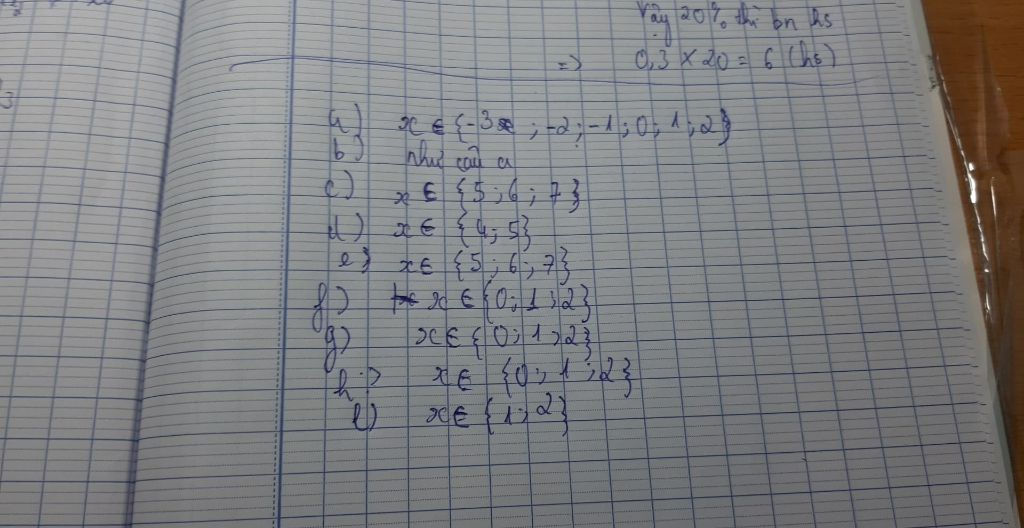 Vậy 20% thì bn hs
=> 0,3 × 20 = 6 (hs)
3
a) x ∈ {-3 ; -2 ; -1 ; 0 ; 1 ; 2}
b) như câu a
c) x ∈ {5 ; 6 ; 7}
d) x ∈ {4 ; 5}
e) x ∈ {5 ; 6 ; 7}
f) x ∈ {0 ; 1 ; 2}
g) x ∈ {0 ; 1 ; 2}
h) x ∈ {0 ; 1 ; 2}
l) x ∈ {1 ; 2}